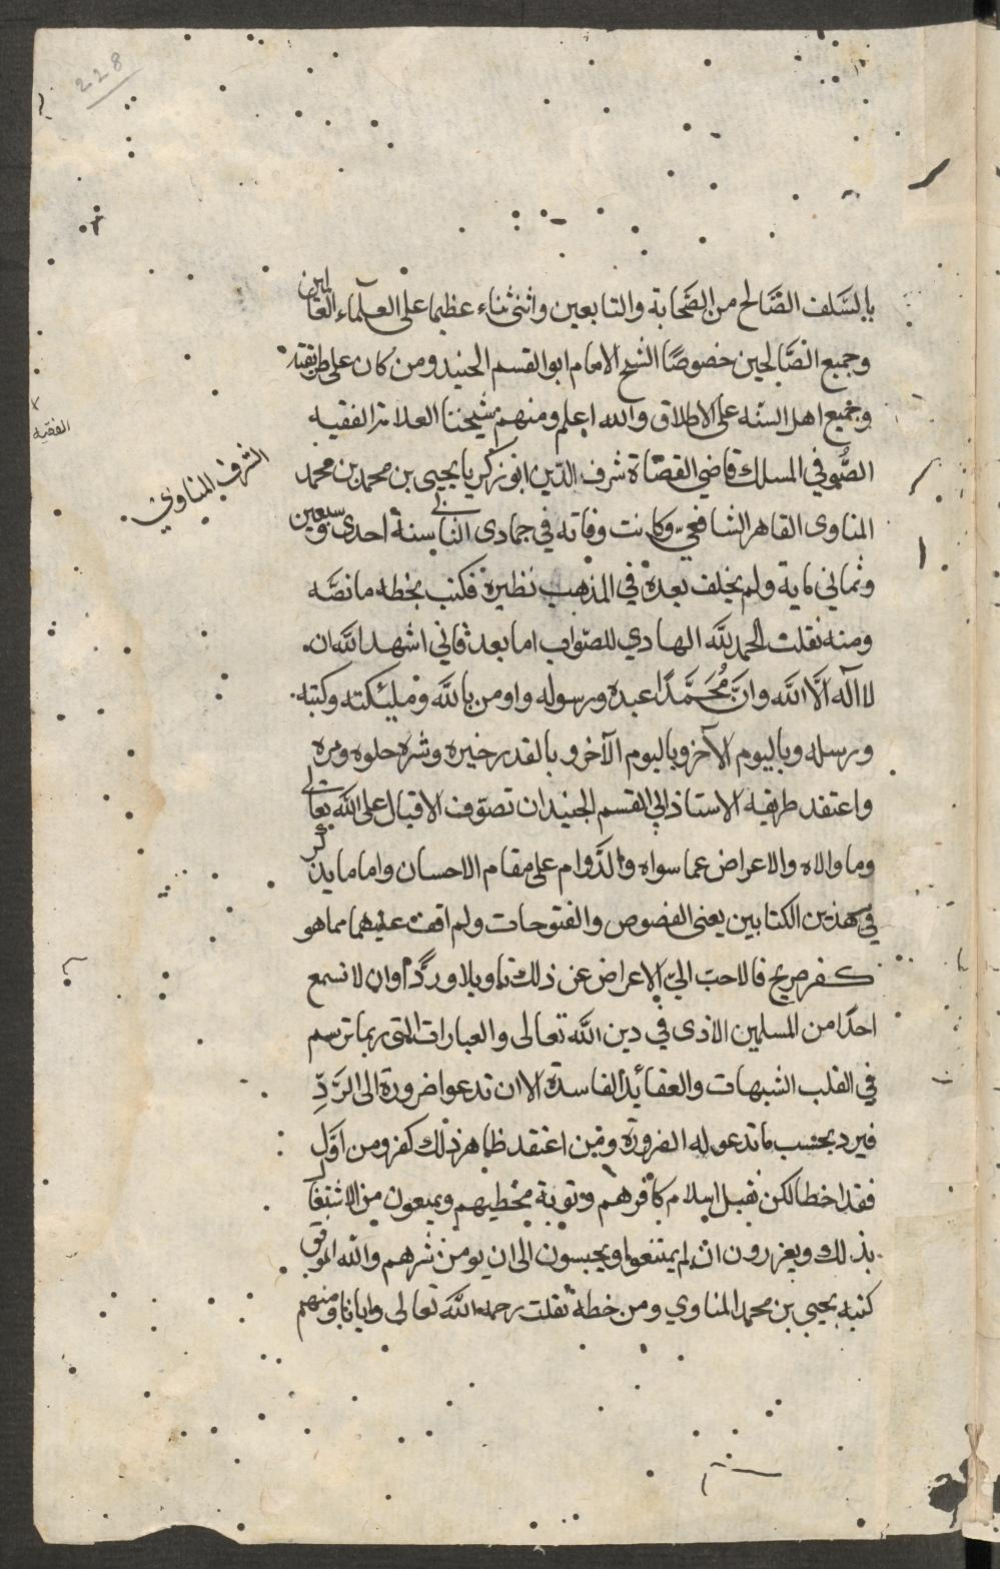 228
بالسَّلف الصَّالح من الصَّحابة والتابعين واثنى ثناء عظيما على العلماء العاملين
وجميع الصَّالحين خصوصًا الشيخ الامام ابو القسم الجنيد ومن كان على طريقته
وجميع اهل السنه على الاطلاق والله اعلم ومنهم شيخنا العلامة الفقيه
الفقيه
الصُّوفي المسلك قاضي القضاة شرف الدين ابو زكريا يحيى بن محمد بن محمد
الشرف المناوي
المناوى القاهر الشافعي وكانت وفاته في جمادى الثاني سنة احدى وسبعين
وثماني ماية ولم يخلف بعده في المذهب نظيره فكتب بخطه ما نصَّه
ومنه نقلت الحمد للَّه الهادي للصواب اما بعد فاني اشهد اللَّه ان
لا اله الَّا اللَّه وانَّ مُحَمَّدًا عبده ورسوله واومن باللَّه وملئكته وكتبه
ورسله وباليوم الآخر وباليوم الآخر وبالقدر خيره وشره حلوه ومره
واعتقد طريقه الاستاذ ابي القسم الجنيد ان تصوّف الاقبال على اللَّه تعالى
وما والاه والاعراض عما سواه والدَّوام على مقام الاحسان واما ما يذكر
في هذين الكتابين يعنى الفصوص والفتوحات ولم اقف عليهما مما هو
كفر صريح فالاحب اليّ الاعراض عن ذلك تاويلا وردًّا وان لا نسمع
احدًا من المسلمين الاذى في دين اللَّه تعالى والعبارات التى ربما ترسم
في القلب الشبهات والعقائد الفاسدة الا ان تدعوا ضرورة الى الرَّدِّ
فيرد بحسب ما تدعو له الضرورة ومن اعتقد ظاهر ذلك كفر ومن اوَّل
فقد اخطا لكن نقبل اسلام كافرهم وتوبة مخطيهم ويمنعون من الاشتغا
بذلك ويعزرون ان لم يمتنعوا ويحبسون الى ان يومن شرهم واللَّه الموفق
كتبه يحيى بن محمد المناوي ومن خطه نقلت رحمه اللَّه تعالى وايانا ومنهم